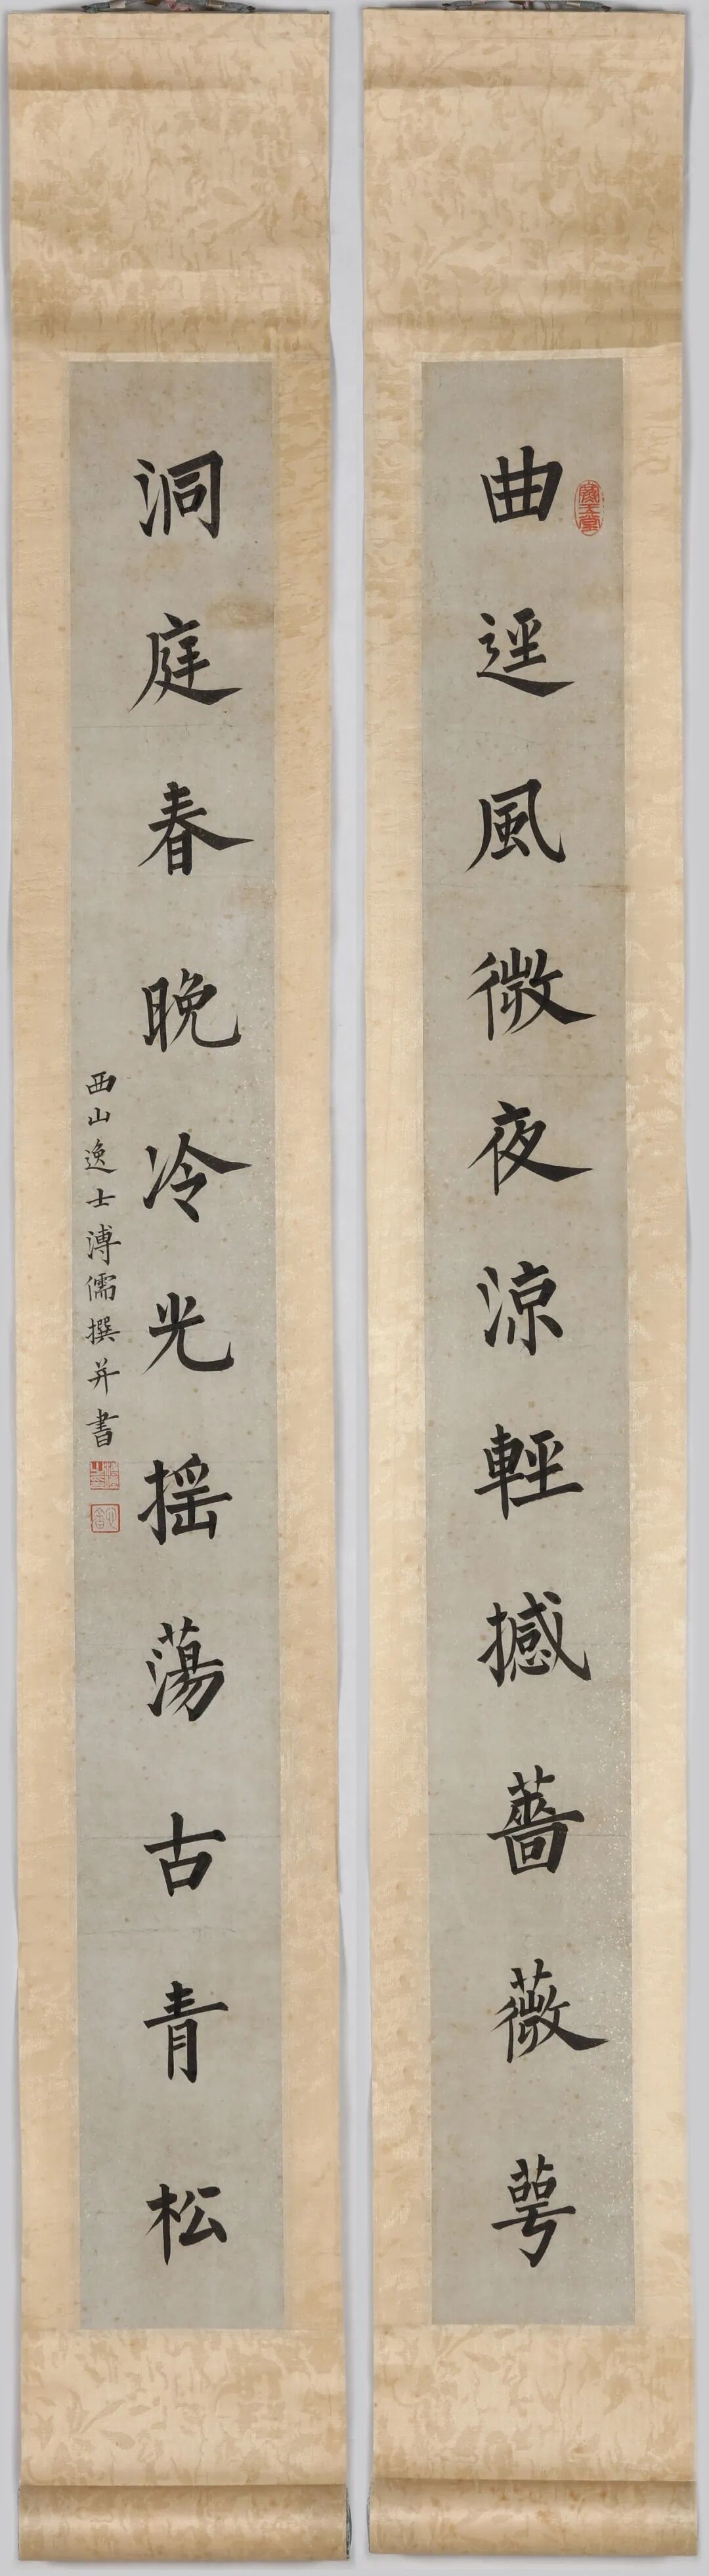 曲逕風微夜涼輕撼薔薇萼
洞庭春晚冷光摇蕩古青松
西山逸士溥儒撰并書